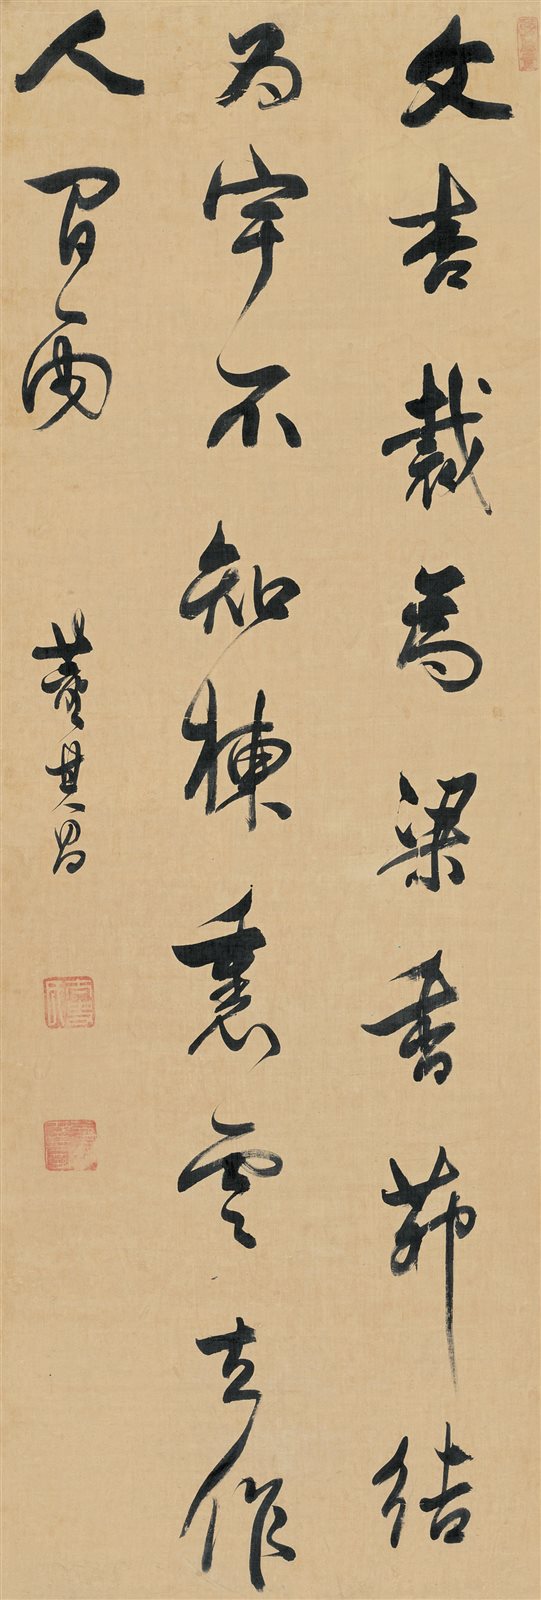 文杏裁為梁香茆結
為宇不知棟裏雲去作
人間雨
董其昌